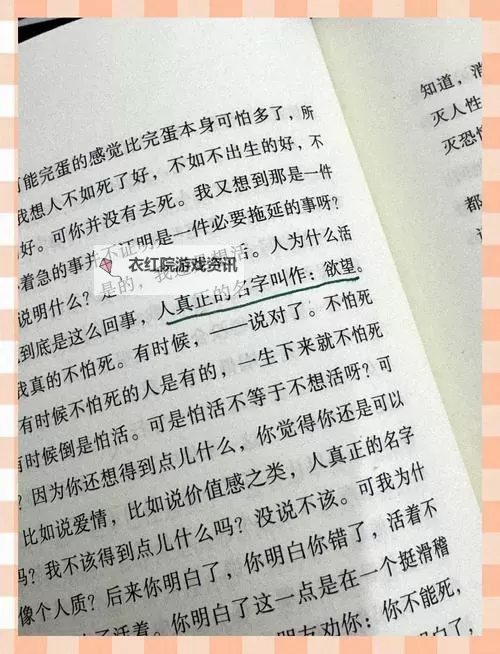 能完蛋的感觉比完蛋本身可怕多了，所
我想人不如死了好，不如不出生的好，不
好。可你并没有去死。我又想到那是一件
着急的事并不证明是一件必要拖延的事呀？
说明什么？是的，我还想活。人为什么活
到底是这么回事，人真正的名字叫作：欲望。
我真的不怕死。有时候，——说对了。不怕死
有时候不怕死的人是有的，一生下来就不怕死
时候倒是怕活。可是怕活不等于不想活呀？可
？因为你还想得到点儿什么，你觉得你还是可以
比如说爱情，比如说价值感之类，人真正的名字
吗？我不该得到点儿什么吗？没说不该。可我为什
像个人质？后来你明白了，你明白你错了，活着不
了活着。你明白了这一点是在一个挺滑稽
友劝你：你不能死，
衣红院游戏资讯
知道，消
灭人性
灭恐
都